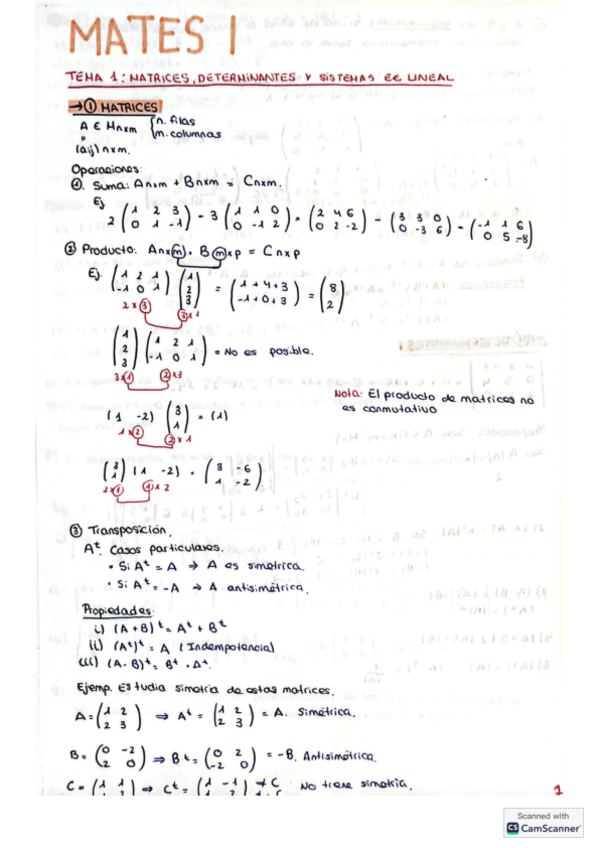 MATES I
TEMA 1: MATRICES, DETERMINANTES Y SISTEMAS EC LINEAL
→ ① MATRICES
A ∈ Mnxm { n. filas
m. columnas
(aij) nxm.
Operaciones:
①. Suma: Anxm + Bnxm = Cnxm.
Ej
2 (1 2 3 / 0 1 -1) - 3 (1 1 0 / 0 -1 2) = (2 4 6 / 0 2 -2) - (3 3 0 / 0 -3 6) = (-1 1 6 / 0 5 -8)
② Producto: Anxm · Bmxp = Cnxp
Ej. (1 2 1 / -1 0 1) (1 / 2 / 3) = (1+4+3 / -1+0+3) = (8 / 2)
2x3 3x1
(1 / 2 / 3) (1 2 1 / -1 0 1) = No es posible.
3x1 2x3
Nota: El producto de matrices no
es conmutativo
(1 -2) (3 / 1) = (1)
1x2 2x1
(3 / 1) (1 -2) = (3 -6 / 1 -2)
2x1 1x2
③ Transposición.
Aᵗ. Casos particulares.
• Si Aᵗ = A → A es simétrica.
• Si Aᵗ = -A → A antisimétrica.
Propiedades:
i) (A+B)ᵗ = Aᵗ + Bᵗ
ii) (Aᵗ)ᵗ = A (Indempotencia)
iii) (A·B)ᵗ = Bᵗ · Aᵗ.
Ejemp. Estudia simetría de estas matrices.
A = (1 2 / 2 3) ⇒ Aᵗ = (1 2 / 2 3) = A. Simétrica.
B = (0 -2 / 2 0) ⇒ Bᵗ = (0 2 / -2 0) = -B. Antisimétrica.
C = (1 1 ⇒ Cᵗ = (1 -1) ≠ C No tiene simetría.
1
Scanned with
CS CamScanner